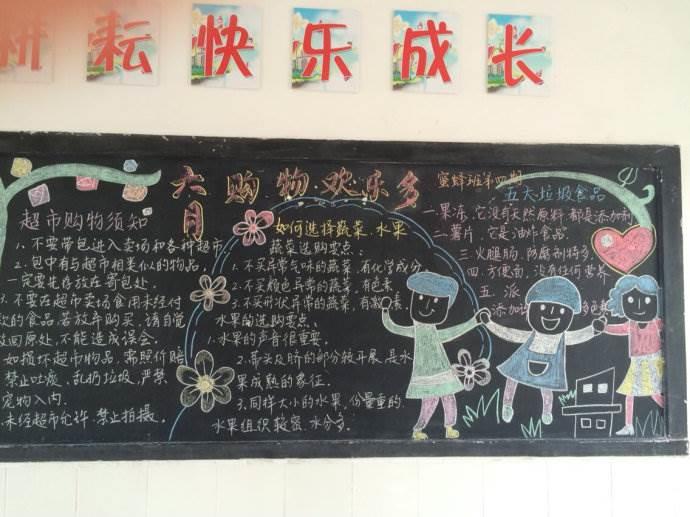 耕耘快乐成长
六月
购物欢乐多
蜜蜂班第四期
超市购物须知
1、不要带包进入卖场和各种超市
2、包中有与超市相类似的物品，
一定要先存放在寄包处
3、不要在超市卖场食用未经付
款的食品，若放弃购买，请自觉
放回原处，不能造成误会。
如损坏超市物品，需照价赔
禁止吐痰、乱扔垃圾，严禁
宠物入内。
未经超市允许，禁止拍摄。
如何选择蔬菜、水果
蔬菜选购要点：
1.不买异常气味的蔬菜，有化学成分
2.不买颜色异常的蔬菜，有色素
3.不买形状异常的蔬菜，有激素
水果的选购要点：
1.水果的声音很重要
2.蒂头及脐的部分较开展，是水
果成熟的象征。
3.同样大小的水果，份量重的，
水果组织较密，水分多。
五大垃圾食品
一、果冻，它没有天然原料，都是添加剂
二、薯片，它是油炸食品
三、火腿肠，防腐剂特多。
四、方便面，没有任何营养
五、派
添加 色素